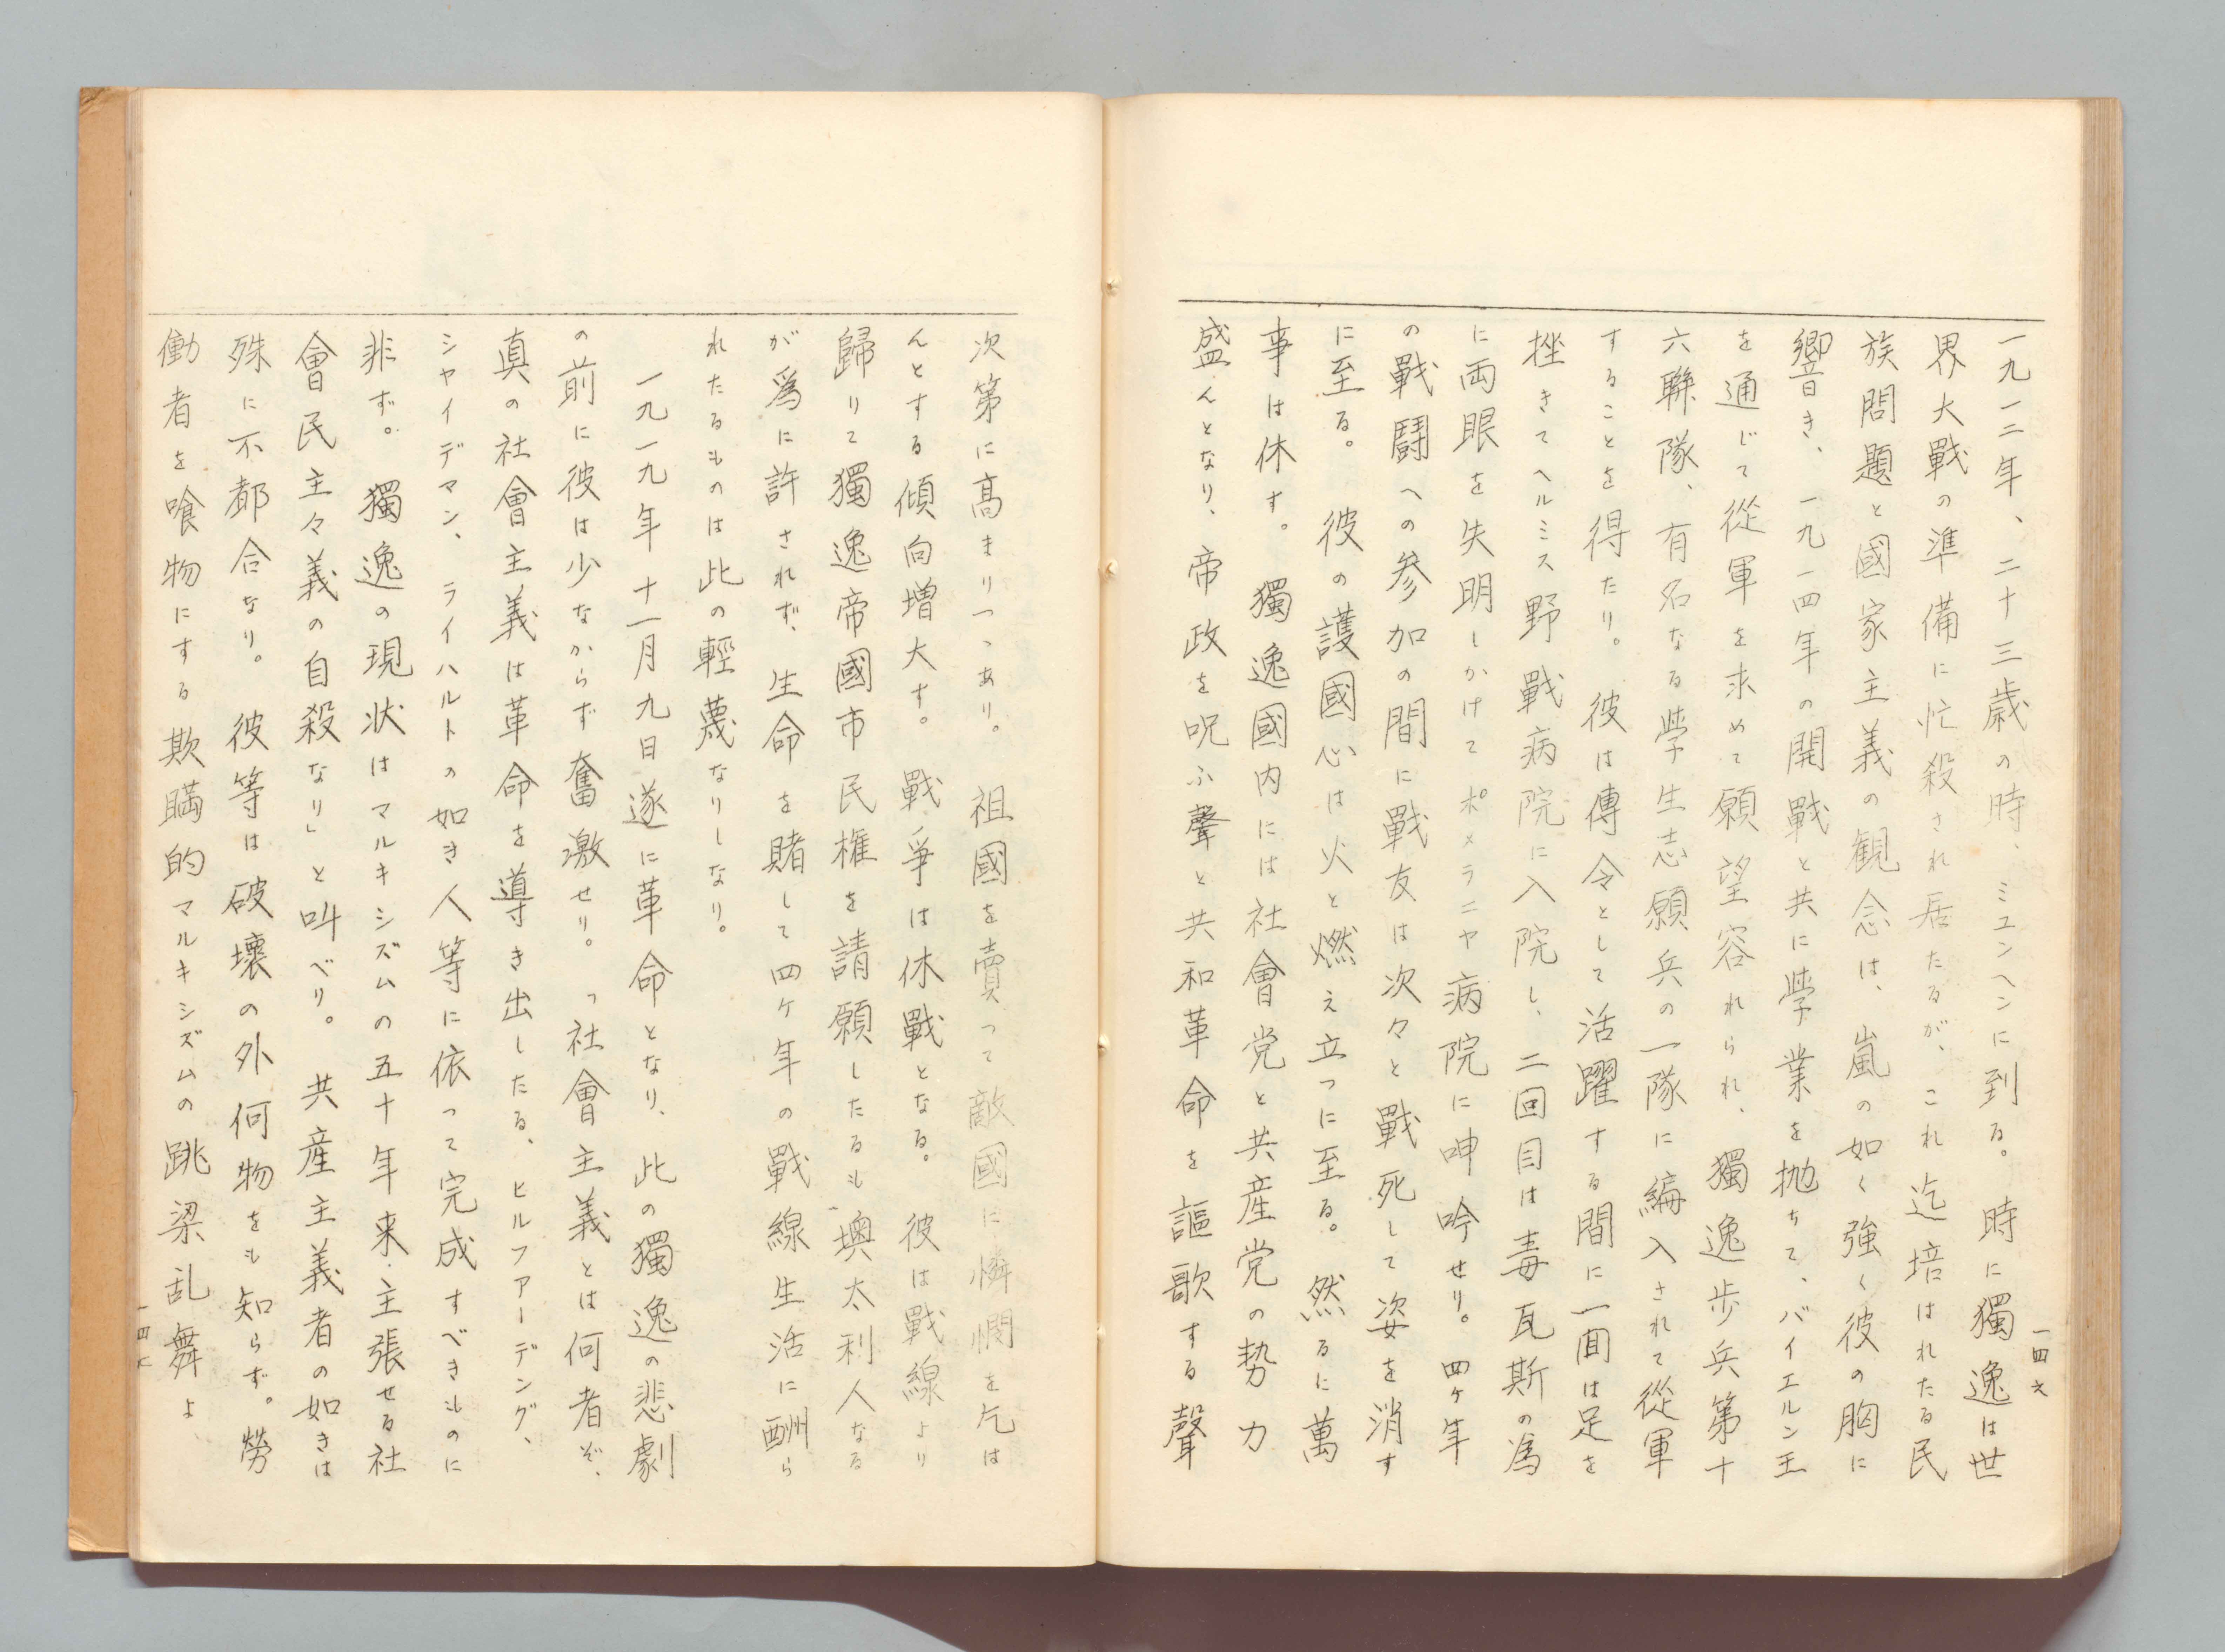 一九一二年、二十三歳の時、ミユンヘンに到る。時に獨逸は世
界大戰の準備に忙殺され居たるが、これ迄培はれたる民
族問題と國家主義の観念は、嵐の如く強く彼の胸に
響き、一九一四年の開戰と共に學業を抛ちて、バイエルン王
を通じて從軍を求めて願望容れられ、獨逸歩兵第十
六聯隊、有名なる學生志願兵の一隊に編入されて從軍
することを得たり。彼は傳令として活躍する間に一面は足を
挫きてヘルミス野戰病院に入院し、二回目は毒瓦斯の為
に両眼を失明しかけてポメラニヤ病院に呻吟せり。四ケ年
の戰闘への参加の間に戰友は次々と戰死して姿を消す
に至る。彼の護國心は火と燃え立つに至る。然るに萬
事は休す。獨逸國内には社會党と共産党の勢力
盛んとなり、帝政を呪ふ聲と共和革命を謳歌する聲
一四六
次第に高まりつつあり。祖國を賣つて敵國に憐憫を乞は
んとする傾向増大す。戰爭は休戰となる。彼は戰線より
歸りて獨逸帝國市民權を請願したるも墺太利人なる
が爲に許されず、生命を賭して四ケ年の戰線生活に酬ら
れたるものは此の輕蔑なりしなり。
一九一九年十一月九日遂に革命となり、此の獨逸の悲劇
の前に彼は少なからず奮激せり。「社會主義とは何者ぞ、
真の社會主義は革命を導き出したる、ヒルフアーデング、
シヤイデマン、ライハルトの如き人等に依つて完成すべきものに
非ず。獨逸の現状はマルキシズムの五十年来主張せる社
會民主々義の自殺なり」と叫べり。共産主義者の如きは
殊に不都合なり。彼等は破壊の外何物をも知らず。勞
働者を喰物にする欺瞞的マルキシズムの跳梁乱舞よ
一四七